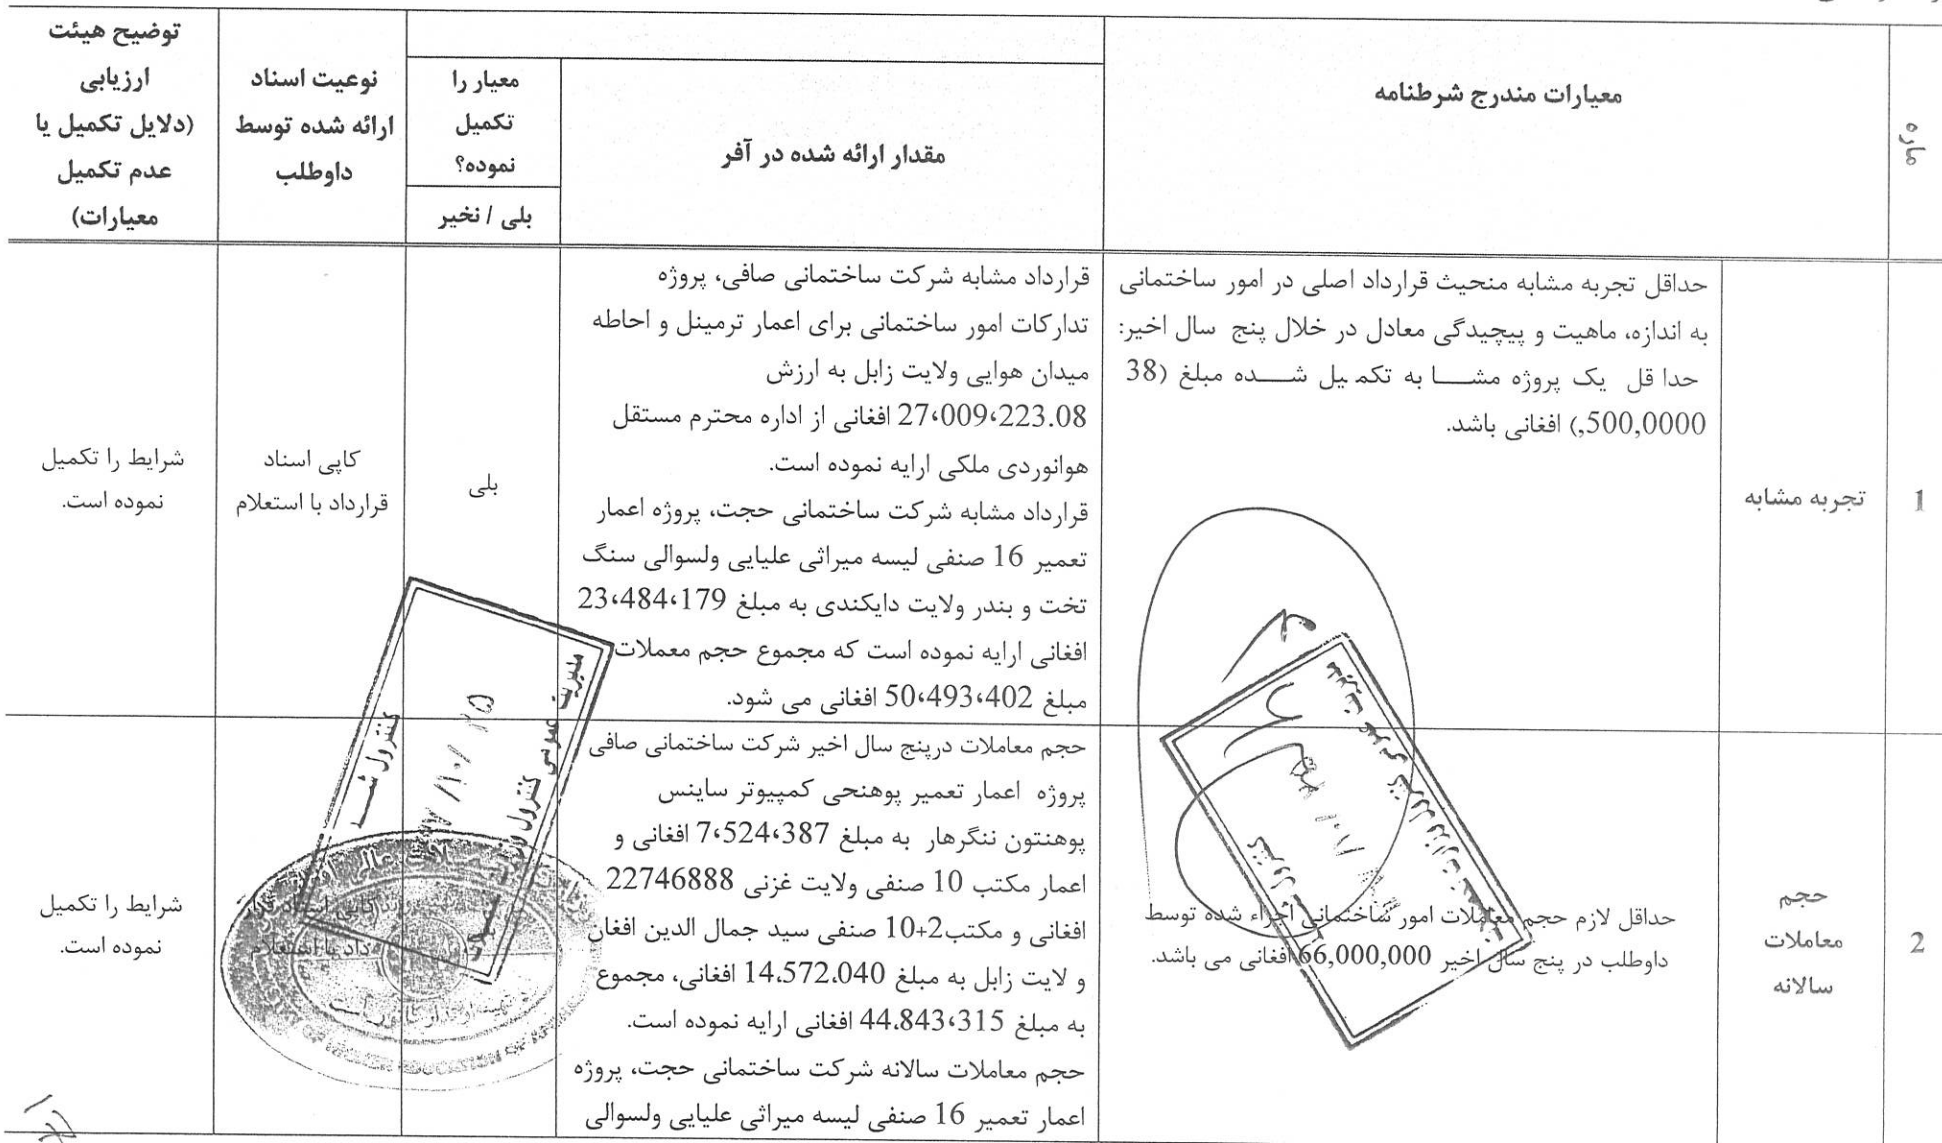 ماره
معیارات مندرج شرطنامه
مقدار ارائه شده در آفر
معیار را
تکمیل
نموده؟
بلی / نخیر
نوعیت اسناد
ارائه شده توسط
داوطلب
توضیح هیئت
ارزیابی
(دلایل تکمیل یا
عدم تکمیل
معیارات)
1
تجربه مشابه
حداقل تجربه مشابه منحیث قرارداد اصلی در امور ساختمانی
به اندازه، ماهیت و پیچیدگی معادل در خلال پنج سال اخیر:
حدا قل یک پروژه مشـــا به تکمـیل شـــده مبلغ (38
,500,0000) افغانی باشد.
قرارداد مشابه شرکت ساختمانی صافی، پروژه
تدارکات امور ساختمانی برای اعمار ترمینل و احاطه
میدان هوایی ولایت زابل به ارزش
27،009،223.08 افغانی از اداره محترم مستقل
هوانوردی ملکی ارایه نموده است.
قرارداد مشابه شرکت ساختمانی حجت، پروژه اعمار
تعمیر 16 صنفی لیسه میراثی علیایی ولسوالی سنگ
تخت و بندر ولایت دایکندی به مبلغ 23،484،179
افغانی ارایه نموده است که مجموع حجم معملات
مبلغ 50،493،402 افغانی می شود.
بلی
کاپی اسناد
قرارداد با استعلام
شرایط را تکمیل
نموده است.
2
حجم
معاملات
سالانه
حداقل لازم حجم معاملات امور ساختمانی اجراء شده توسط
داوطلب در پنج سال اخیر 66,000,000 افغانی می باشد.
حجم معاملات درپنج سال اخیر شرکت ساختمانی صافی
پروژه اعمار تعمیر پوهنحی کمپیوتر ساینس
پوهنتون ننگرهار به مبلغ 7،524،387 افغانی و
اعمار مکتب 10 صنفی ولایت غزنی 22746888
افغانی و مکتب2+10 صنفی سید جمال الدین افغان
و لایت زابل به مبلغ 14.572.040 افغانی، مجموع
به مبلغ 44.843،315 افغانی ارایه نموده است.
حجم معاملات سالانه شرکت ساختمانی حجت، پروژه
اعمار تعمیر 16 صنفی لیسه میراثی علیایی ولسوالی
کاپی اسناد قرار
داد با استعلام
شرایط را تکمیل
نموده است.
کنترول شـــد
مدیریت عمومی کنترول